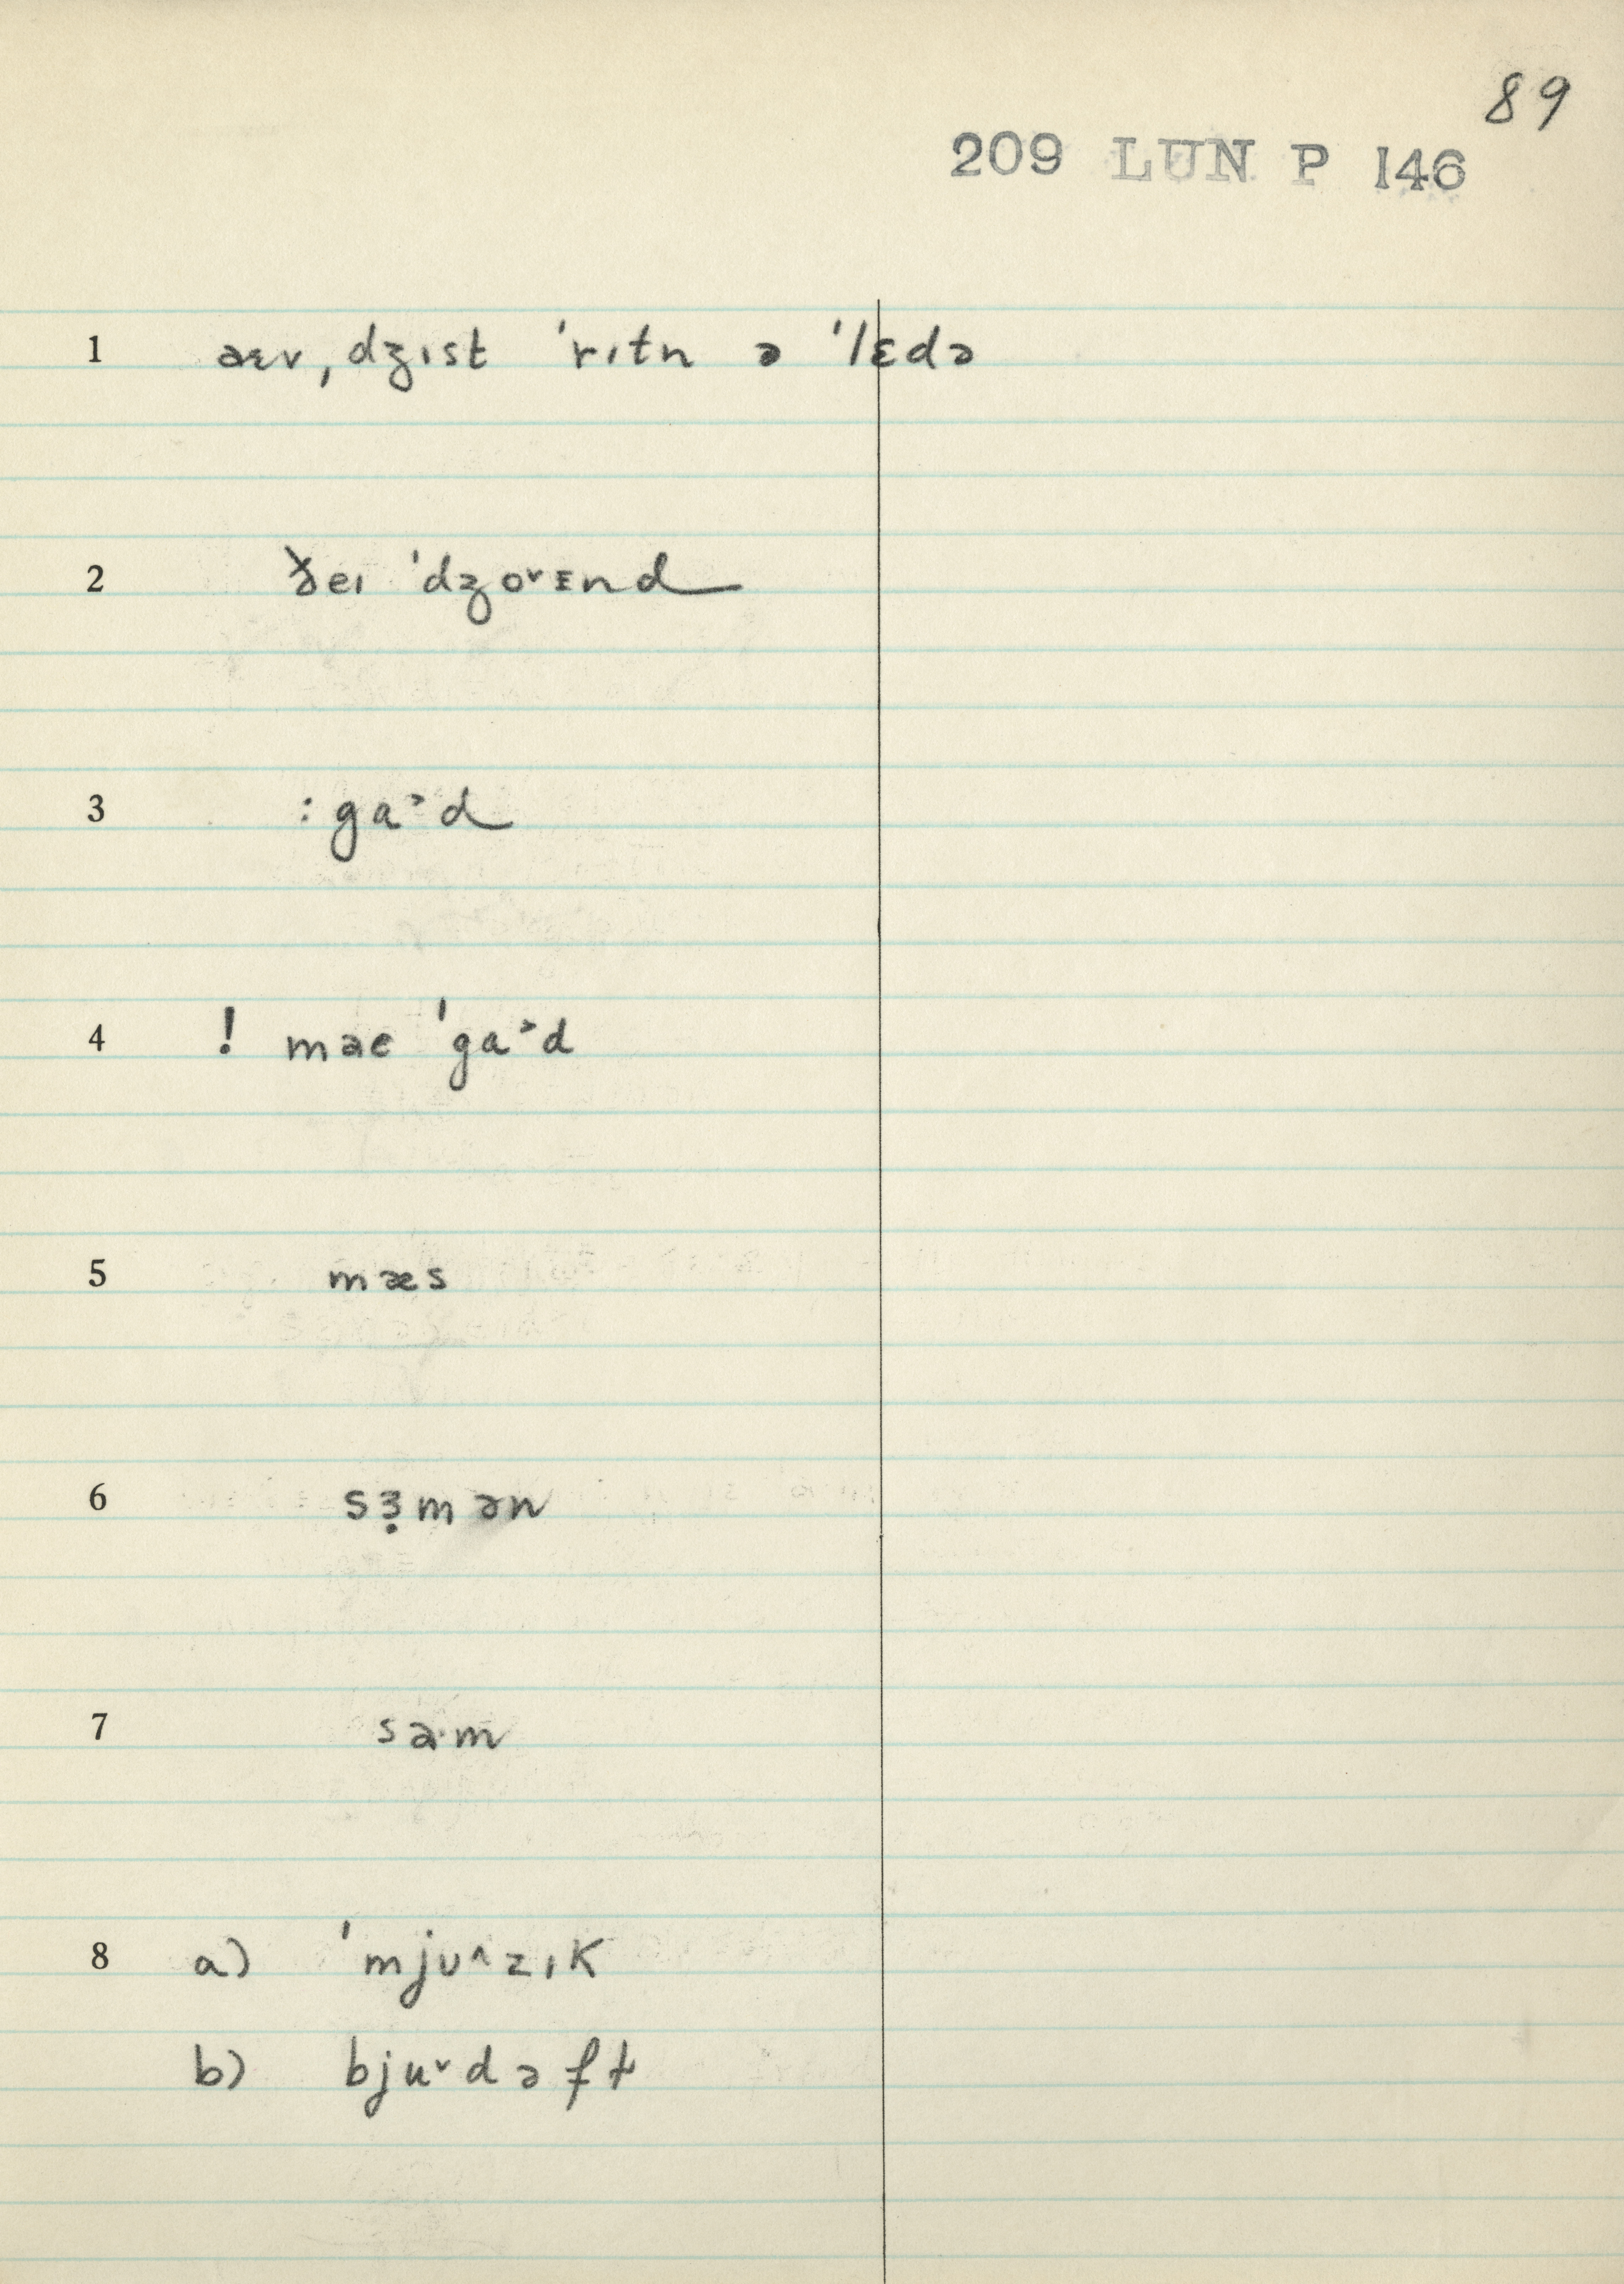 89
209 LUN P 146
1 æɛv ˌdʒɪst ˈrɪtn ə ˈlɛdə
2 ðeɪ ˈdʒo˅ɪnd
3 :ga˃d
4 ! mae ˈga˃d
5 mæs
6 sɜ̣mən
7 sa·m
8 a) ˈmju˄zɪk
b) bju˅dəfɫ